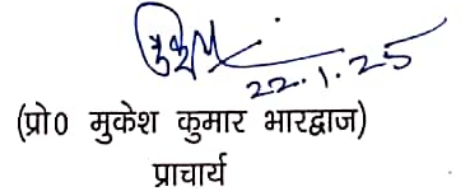 22.1.25
(प्रो० मुकेश कुमार भारद्वाज)
प्राचार्य